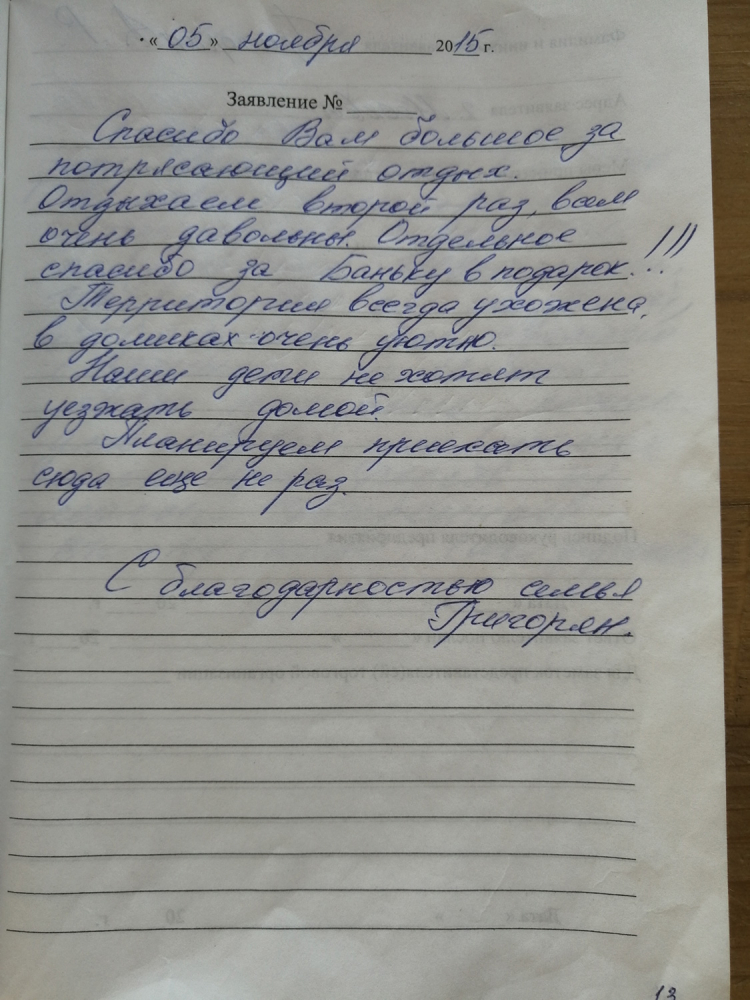 «05» ноября 2015 г.
Заявление №
Спасибо Вам большое за
потрясающий отдых.
Отдыхаем второй раз, всем
очень давольны. Отдельное
спасибо за Баньку в подарок...!!!
Территория всегда ухожена,
в домиках очень уютно.
Наши дети не хотят
уезжать домой.
Планируем приехать
сюда еще не раз.
С благодарностью семья
Григорян.
13